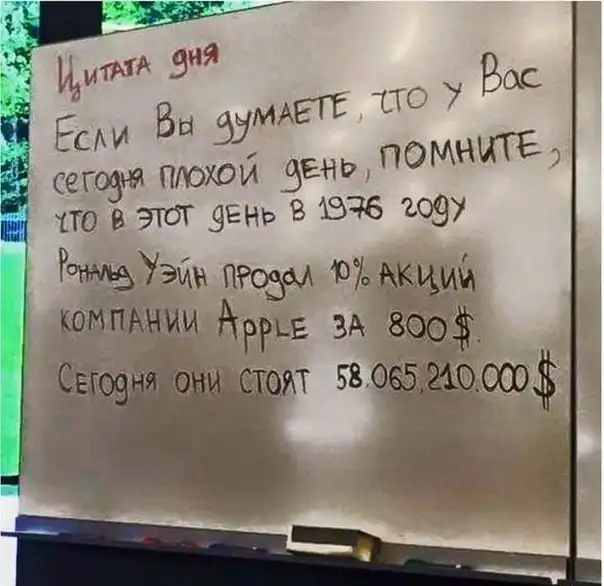 Цитата дня
Если Вы думаете, что у Вас
сегодня плохой день, помните,
что в этот день в 1976 году
Рональд Уэйн продал 10% акций
компании Apple за 800$.
Сегодня они стоят 58.065.210.000$